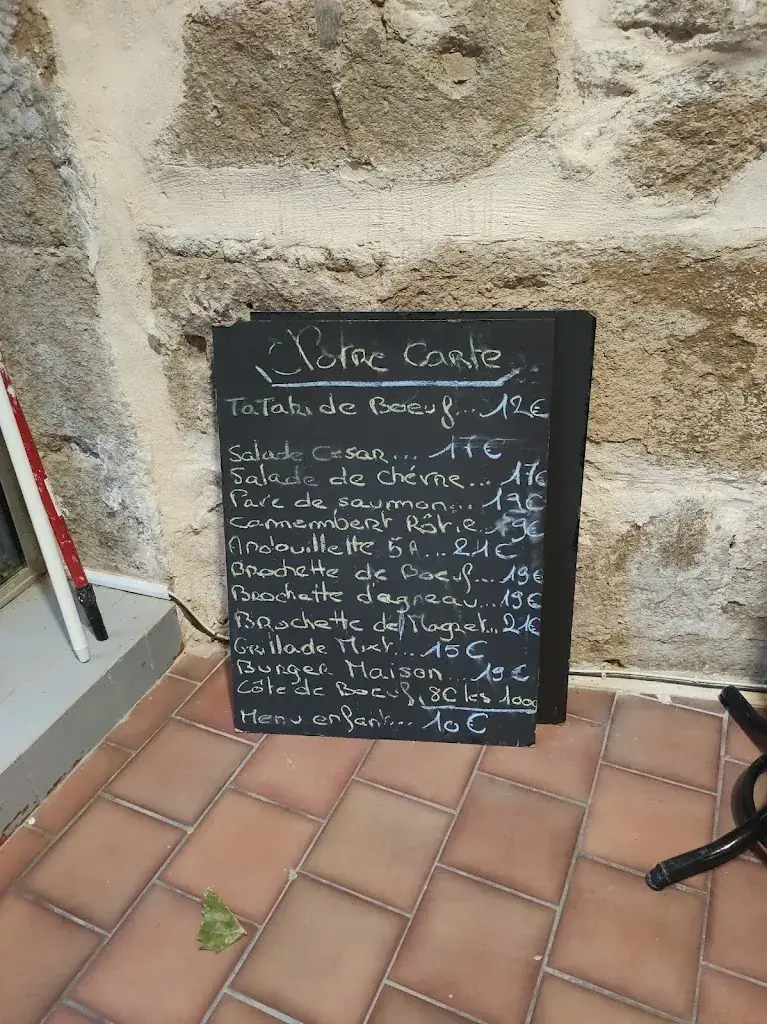 Notre Carte
Tataki de Boeuf... 12€
Salade Cesar... 17€
Salade de chévre... 17€
Pavé de saumon... 19€
Camembert Rôtie... 19€
Andouillette 5A... 21€
Brochette de Boeuf... 19€
Brochette d'agneau... 19€
Brochette de Magret.. 21€
Grillade Mixt... 15€
Burger Maison... 19€
Côte de Boeuf 8€ les 100g
Menu enfant... 10€